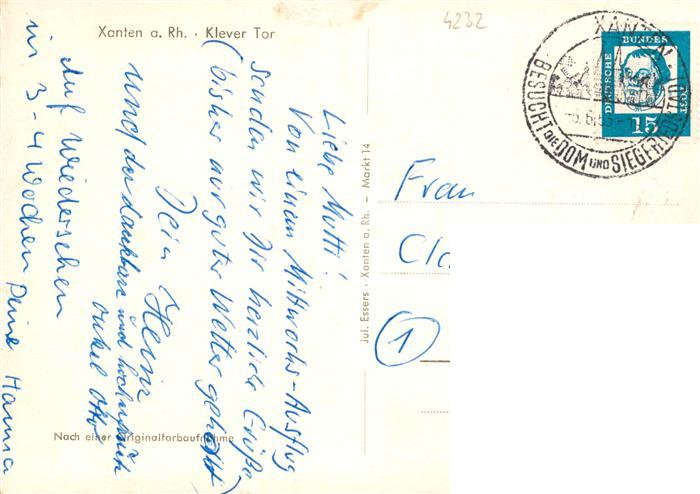 Xanten a. Rh. · Klever Tor
4232
XANTEN
BESUCHT DIE DOM UND SIEGFRIEDSTADT
DEUTSCHE BUNDESPOST
15
Liebe Mutti!
Von einem Mittwochs-Ausflug
senden wir Dir herzliche Grüße
(bisher nur gutes Wetter gehabt)
Dein Heinz
und der dankbare und
Onkel Otto
Auf Wiedersehen
in 3-4 Wochen Deine Hanna
Jul. Essers · Xanten a. Rh. — Markt 14
Frau
Cla
1
Nach einer Originalfarbaufnahme